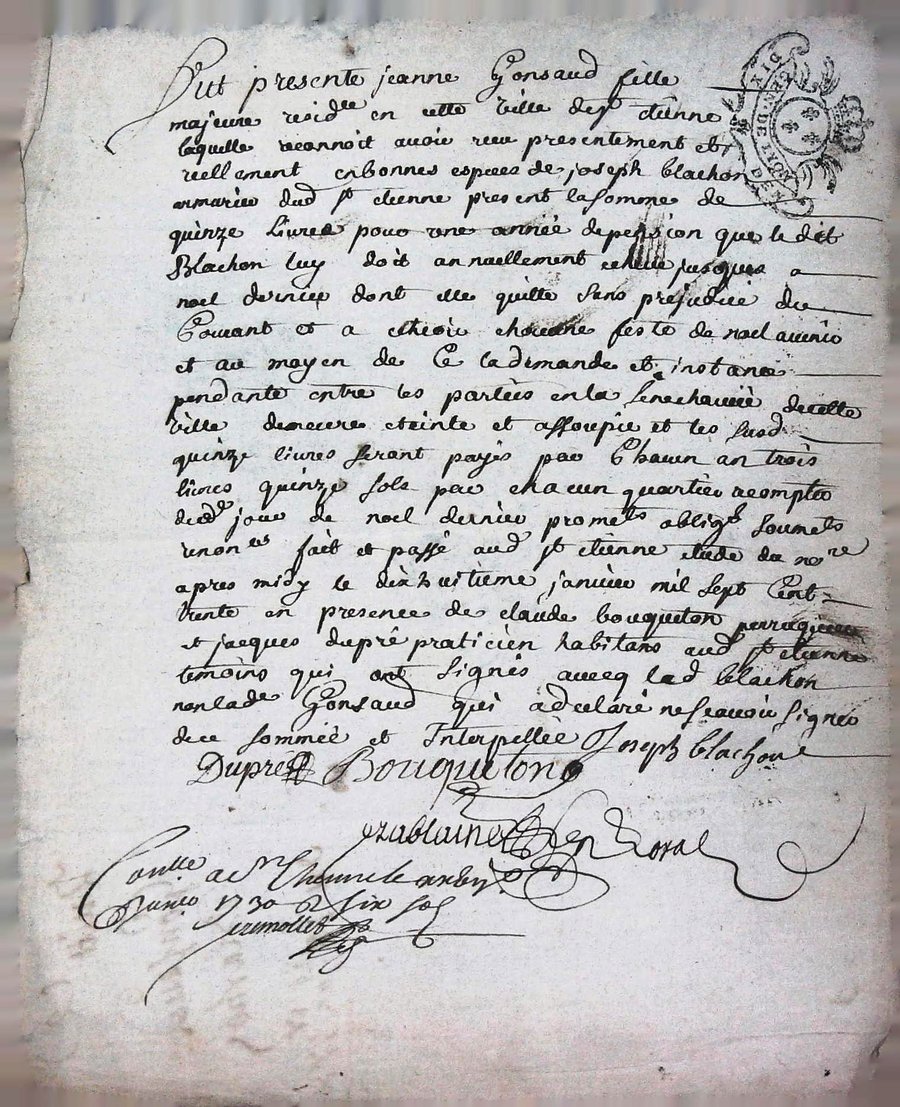 Fut presente jeanne Gonsaud fille
majeure resid.te en cette ville de st etienne
laquelle reconnoit avoir receu presentement et
reellement en bonnes especes de joseph blachon
armurier dud st etienne present la somme de
quinze livres pour une année de pension que le dit
Blachon luy doit annuellement echeue jusques a
noel dernier dont elle quitte sans prejudice du
Courant et a echeoir chacune feste de noel avenir
et au moyen de Ce la demande et instance
pendante entre les parties en la senechaucée de cette
ville demeure eteinte et assoupie et les susd
quinze livres seront payés par Chacun an trois
livres quinze sols par chacun quartier a compter
dud jour de noel dernier promets oblig.t soumets
renon.es fait et passé aud st etienne etude du no.re
apres midy le dix huitieme janvier mil sept Cent
trente en presence de claude bouqueton perruquier
et jacques dupré praticien habitans aud st etienne
temoins qui ont signés avecq led blachon
non lade Gonsaud qui a declaré ne scavoir signer
de ce sommée et Interpellée Joseph blachon
Dupré Bouqueton
Royal
Con.lle a St Etienne le
janv.r 1730 R six sols
GEN. DE LYON